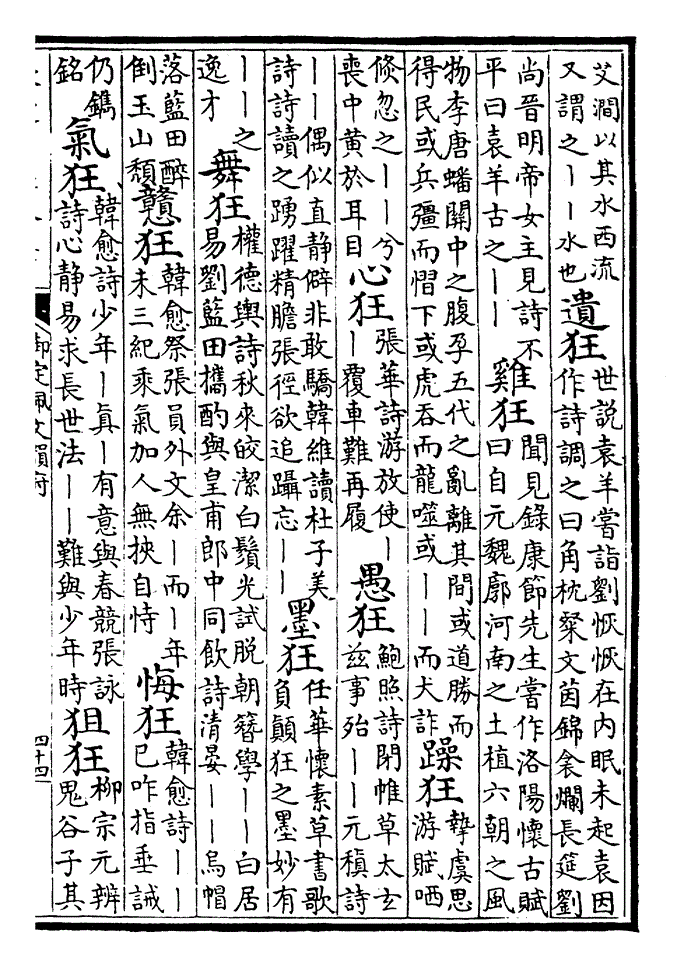 艾澗以其水西流
又謂之丨丨水也
遺狂
世說袁羊嘗詣劉恢恢在内眠未起袁因
作詩調之曰角枕粲文茵錦衾爛長筵劉
尚晉明帝女主見詩不
平曰袁羊古之丨丨
雞狂
聞見錄康節先生嘗作洛陽懷古賦
曰自元魏廓河南之土植六朝之風
物李唐蟠關中之腹孕五代之亂離其間或道勝而
得民或兵彊而慴下或虎吞而龍噬或丨丨而犬詐
躁狂
摯虞思
游賦哂
倐忽之丨丨兮
喪中黃於耳目
心狂
張華詩游放使丨
丨覆車難再履
愚狂
鮑照詩閉帷草太玄
兹事殆丨丨元稹詩
丨丨偶似直静僻非敢驕韓維讀杜子美
詩詩讀之踴躍精膽張徑欲追躡忘丨丨
墨狂
任華懷素草書歌
負顛狂之墨妙有
丨丨之
逸才
舞狂
權德輿詩秋來皎潔白鬚光試脱朝簪學丨丨白居
易劉藍田攜酌與皇甫郎中同飲詩清晏丨丨烏帽
落藍田醉
倒玉山頹
戇狂
韓愈祭張員外文余丨而丨年
未三紀乘氣加人無挾自恃
悔狂
韓愈詩丨丨
已咋指垂誡
仍鐫
銘
氣狂
韓愈詩少年丨真丨有意與春競張詠
詩心静易求長世法丨丨難與少年時
狙狂
柳宗元辨
鬼谷子其
御定佩文韻府
四十四